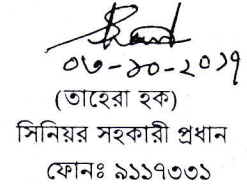 ০৩-১০-২০১৭
(তাহেরা হক)
সিনিয়র সহকারী প্রধান
ফোনঃ ৯১১৭৩৩১